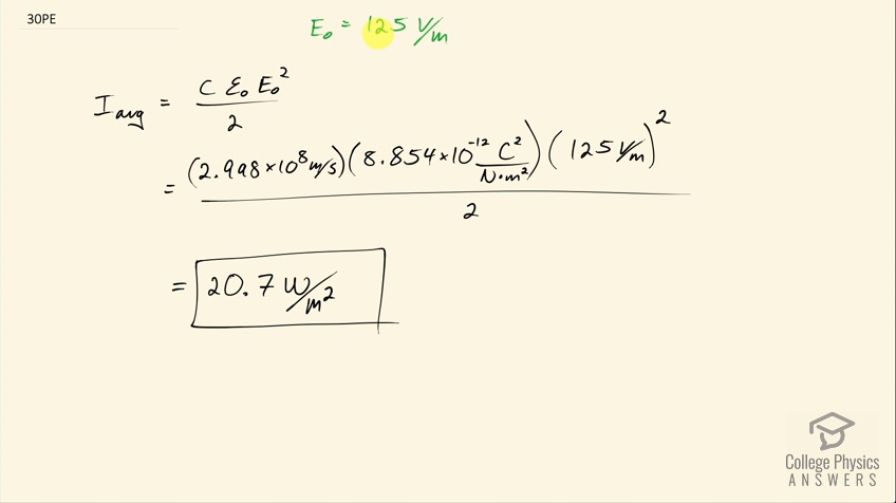 30PE
E₀ = 125 V/m
I avg = C ε₀ E₀² / 2
= (2.998×10⁸ m/s)(8.854×10⁻¹² C²/N·m²)(125 V/m)² / 2
= 20.7 W/m²
College Physics
ANSWERS